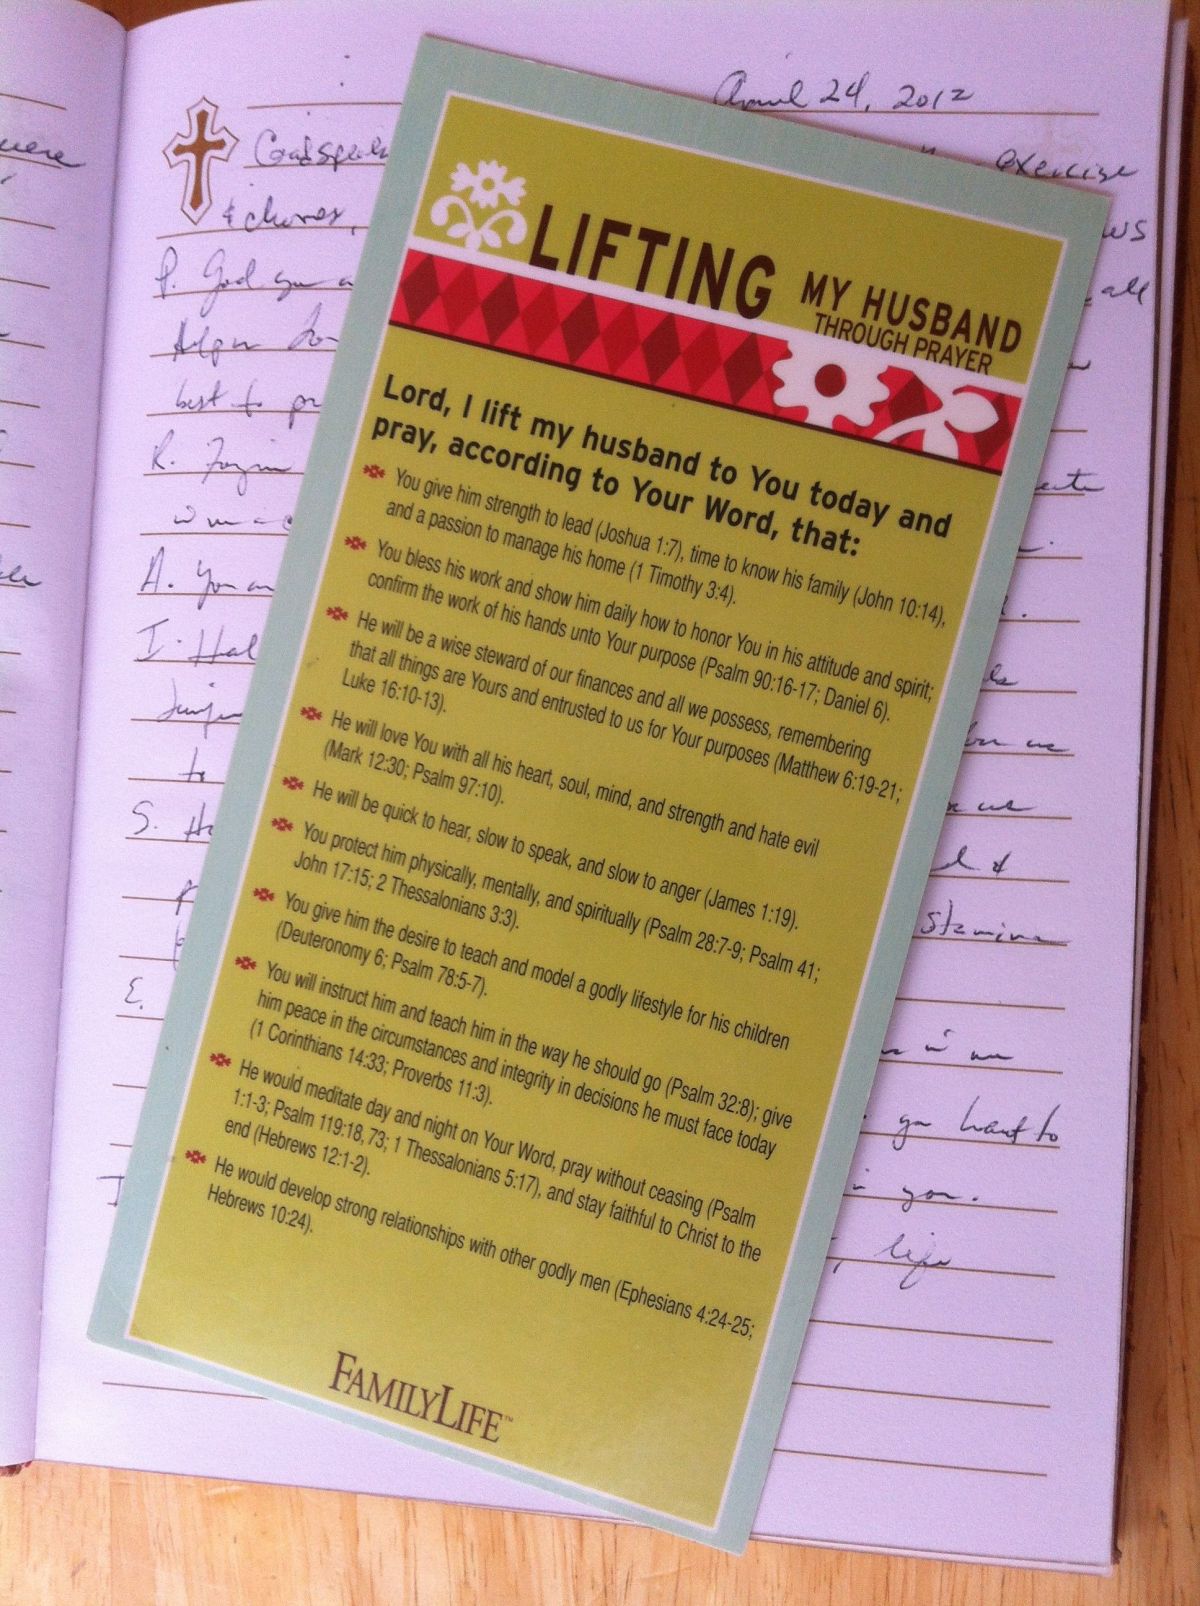 April 24, 2012
exercise
& chores,
P. God you a
all
Helper
best to pr
R.
A. You are
I.
to
S.
&
stamina
E.
in me
you want to
in you.
life
LIFTING MY HUSBAND
THROUGH PRAYER
Lord, I lift my husband to You today and
pray, according to Your Word, that:
You give him strength to lead (Joshua 1:7), time to know his family (John 10:14),
and a passion to manage his home (1 Timothy 3:4).
You bless his work and show him daily how to honor You in his attitude and spirit;
confirm the work of his hands unto Your purpose (Psalm 90:16-17; Daniel 6).
He will be a wise steward of our finances and all we possess, remembering
that all things are Yours and entrusted to us for Your purposes (Matthew 6:19-21;
Luke 16:10-13).
He will love You with all his heart, soul, mind, and strength and hate evil
(Mark 12:30; Psalm 97:10).
He will be quick to hear, slow to speak, and slow to anger (James 1:19).
You protect him physically, mentally, and spiritually (Psalm 28:7-9; Psalm 41;
John 17:15; 2 Thessalonians 3:3).
You give him the desire to teach and model a godly lifestyle for his children
(Deuteronomy 6; Psalm 78:5-7).
You will instruct him and teach him in the way he should go (Psalm 32:8); give
him peace in the circumstances and integrity in decisions he must face today
(1 Corinthians 14:33; Proverbs 11:3).
He would meditate day and night on Your Word, pray without ceasing (Psalm
1:1-3; Psalm 119:18,73; 1 Thessalonians 5:17), and stay faithful to Christ to the
end (Hebrews 12:1-2).
He would develop strong relationships with other godly men (Ephesians 4:24-25;
Hebrews 10:24).
FAMILYLIFE™